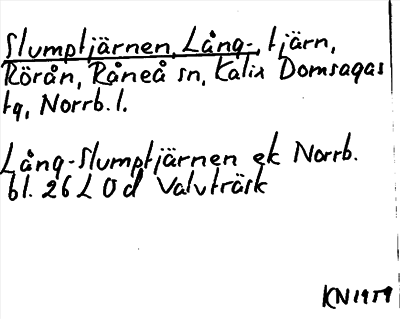 Slumptjärnen, Lång-, tjärn,
Rörån, Råneå sn, Kalix Domsagas
tg, Norrb. l.
Lång-Slumptjärnen ek Norrb.
bl. 26 L 0 d Valvträsk
KN 1959